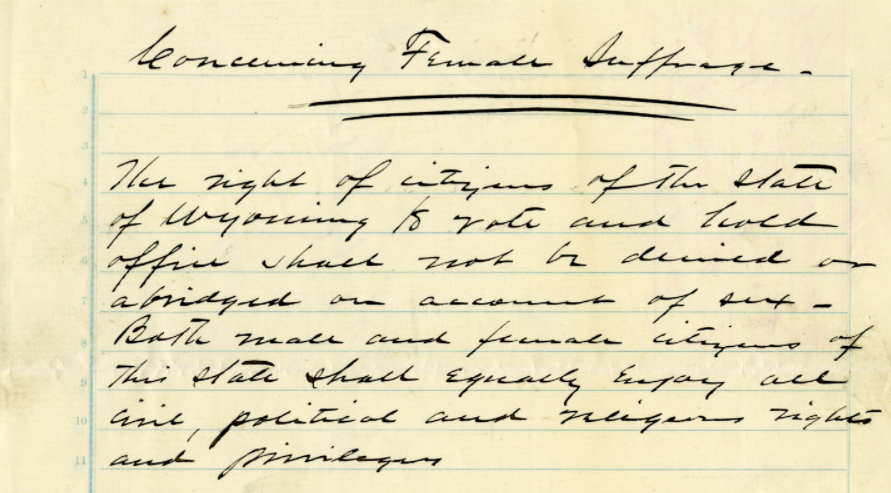 Concerning Female Suffrage.
1
2
3
4 The right of citizens of the State
5 of Wyoming to vote and hold
6 office shall not be denied or
7 abridged on account of sex -
8 Both male and female citizens of
9 this state shall equally enjoy all
10 civil, political and religious rights
11 and privileges